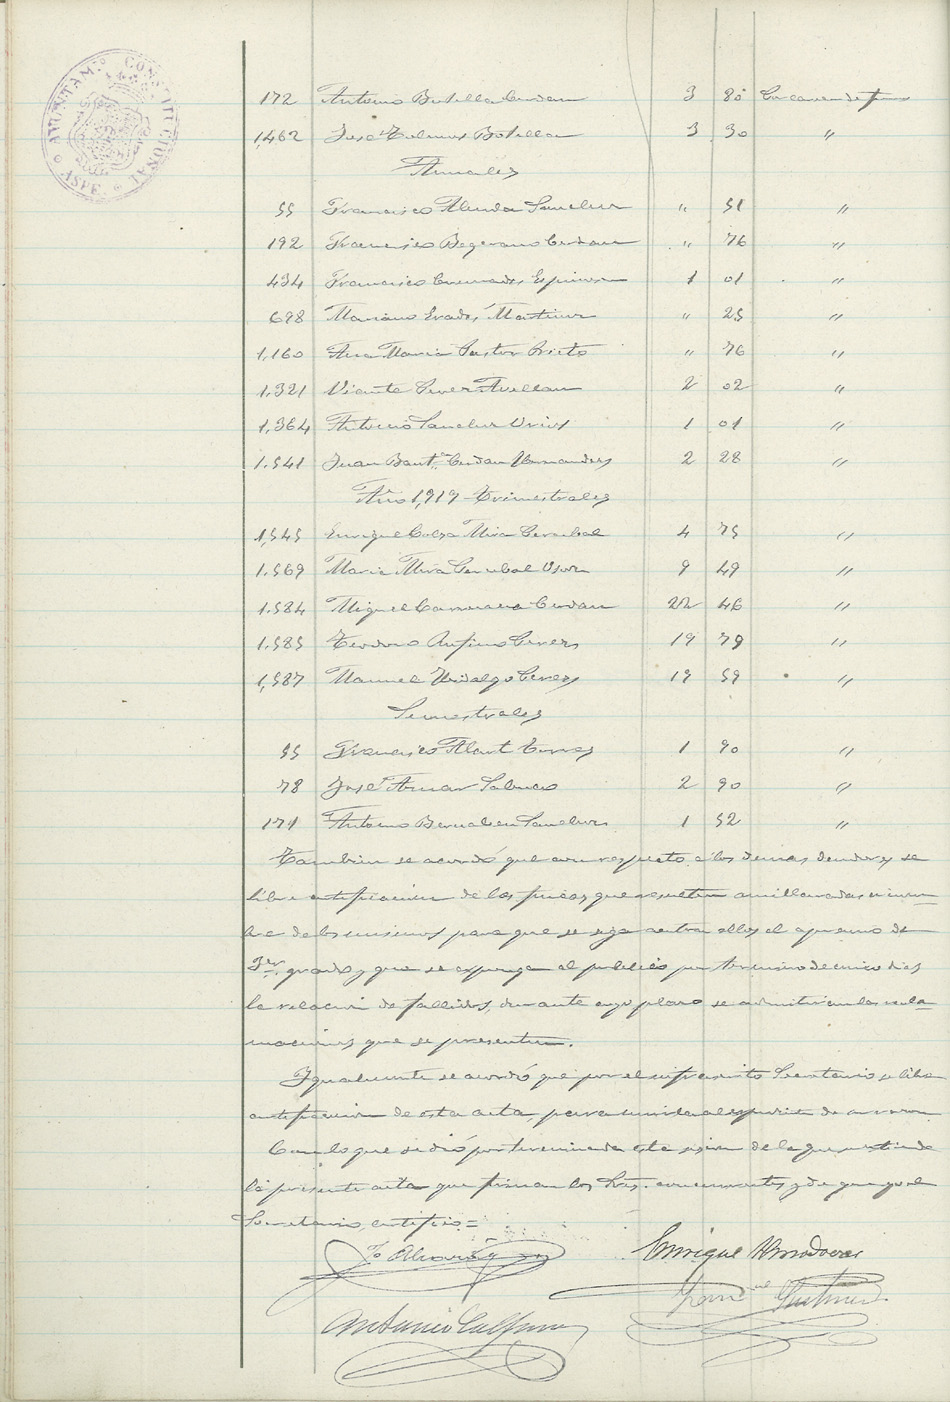 AYUNTAM. CONSTITUCIONAL ASPE.
172 Antonio Botella Cerdan 3 80 Carecer de fincas
1,462 José Botella 3 30 "
Anuales
55 Francisco Sanchez " 51 "
192 Francisco Cerdan " 76 "
434 Francisco Espinosa 1 01 "
698 Mariano Martinez " 25 "
1,160 Ana Maria Pastor Prieto " 76 "
1,321 Vicente Avellan 2 02 "
1,364 Antonio Sanchez Urios 1 01 "
1.541 Juan Baut.ª Cerdan Hernandez 2 28 "
Año 1,919 - Trimestrales
1,545 Enrique Mira Gerubal 4 75 "
1.569 Maria Mira Gerubal 9 49 "
1.584 Miguel Cerdan 22 46 "
1.585 Teodoro Rufino 19 79 "
1,587 Manuel Hidalgo 19 59 "
Semestrales
55 Francisco Alart Torres 1 90 "
78 José Aznar 2 90 "
171 Antonio Bernabeu Sanchez 1 52 "
Tambien se acordó que con respecto a los demas deudores se
libre certificación de las fincas que resulten amillaradas a nom-
bre de los mismos para que se siga contra ellos el apremio de
3er grado y que se exponga al publico por termino de cinco dias
la relacion de fallidos, durante cuyo plazo se admitiran las recla-
maciones que se presenten.
Igualmente se acordó que por el infrascrito Secretario se libre
certificacion de esta acta, para unirla al expediente de su razon
Con lo que se dió por terminada esta sesion de la que se extiende
la presente acta que firman los Sres. concurrentes, y de que yo el
Secretario, certifico =
Enrique Almodovar
Antonio